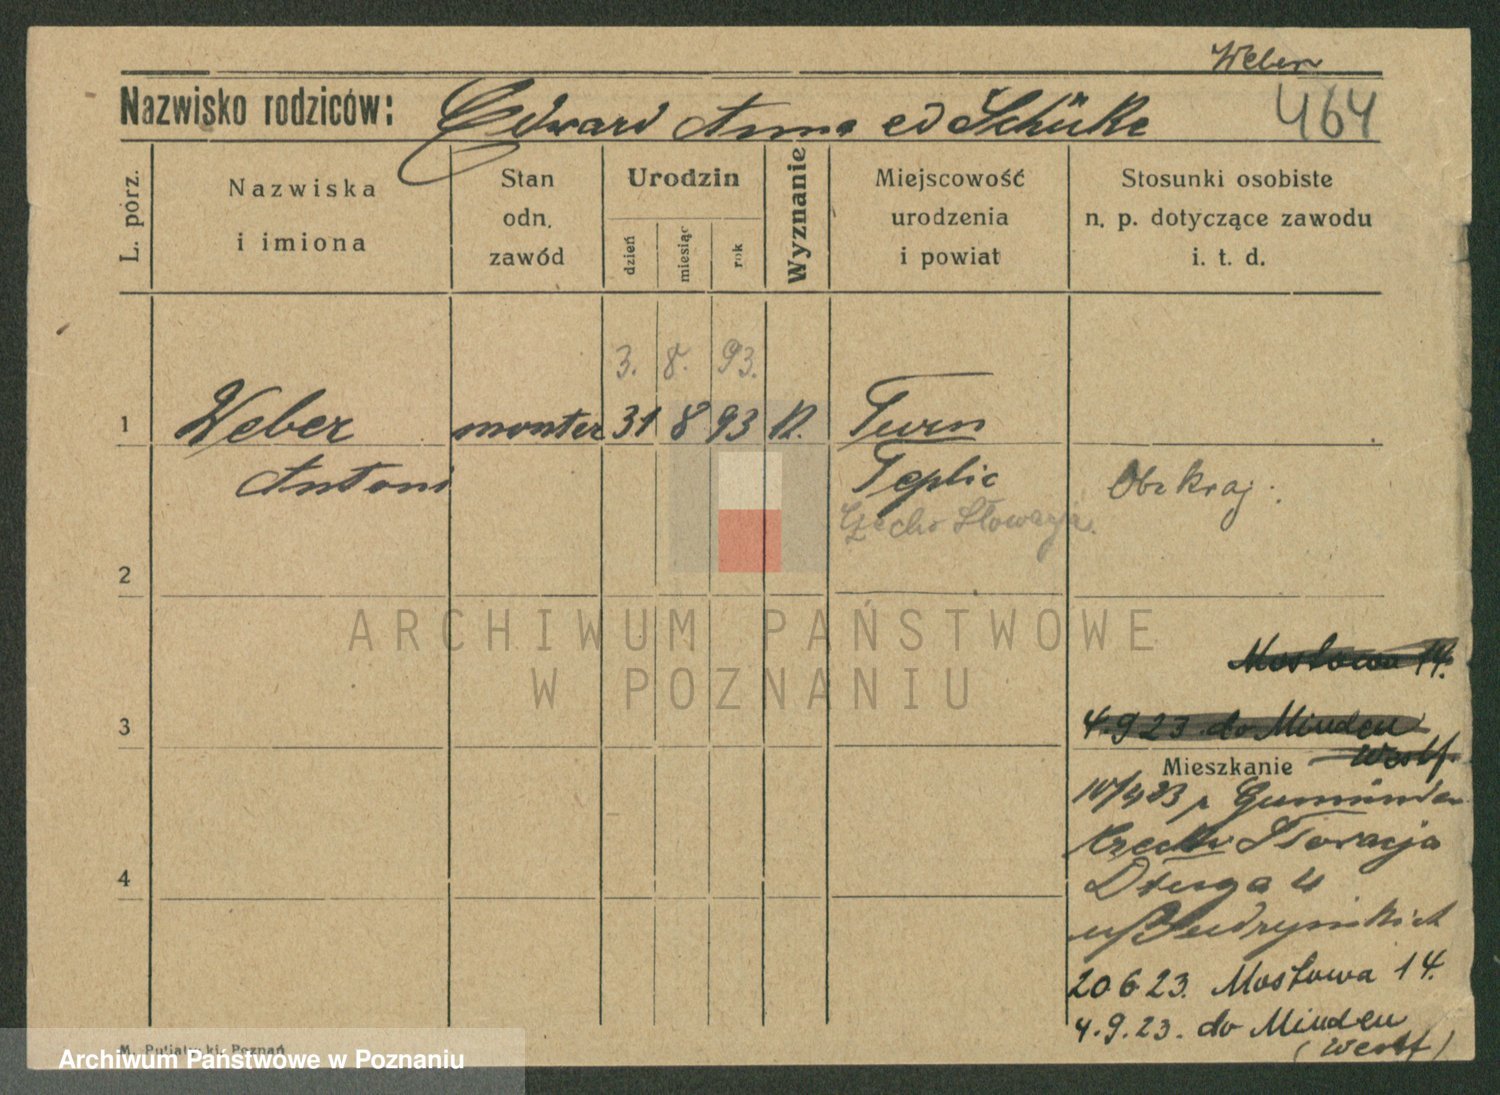 Weber
Nazwisko rodziców: Edward Anna ed Schücke
464
L. porz.
Nazwiska
i imiona
Stan
odn.
zawód
Urodzin
dzień
miesiąc
rok
Wyznanie
Miejscowość
urodzenia
i powiat
Stosunki osobiste
n. p. dotyczące zawodu
i. t. d.
3. 8. 93.
1 Weber monter 31 8 93 R. Turn
Antoni Teplic Obr kraj.
Czecho Słowacja.
2
ARCHIWUM PAŃSTWOWE
W POZNANIU
Mostowa 14.
3 4.9 23 do Minden
Westf.
Mieszkanie
Słowacja
4 Długa 4
20 6 23. Mostowa 14.
4.9.23. do Minden
(Westf)
M. Putiatycki Poznań
Archiwum Państwowe w Poznaniu